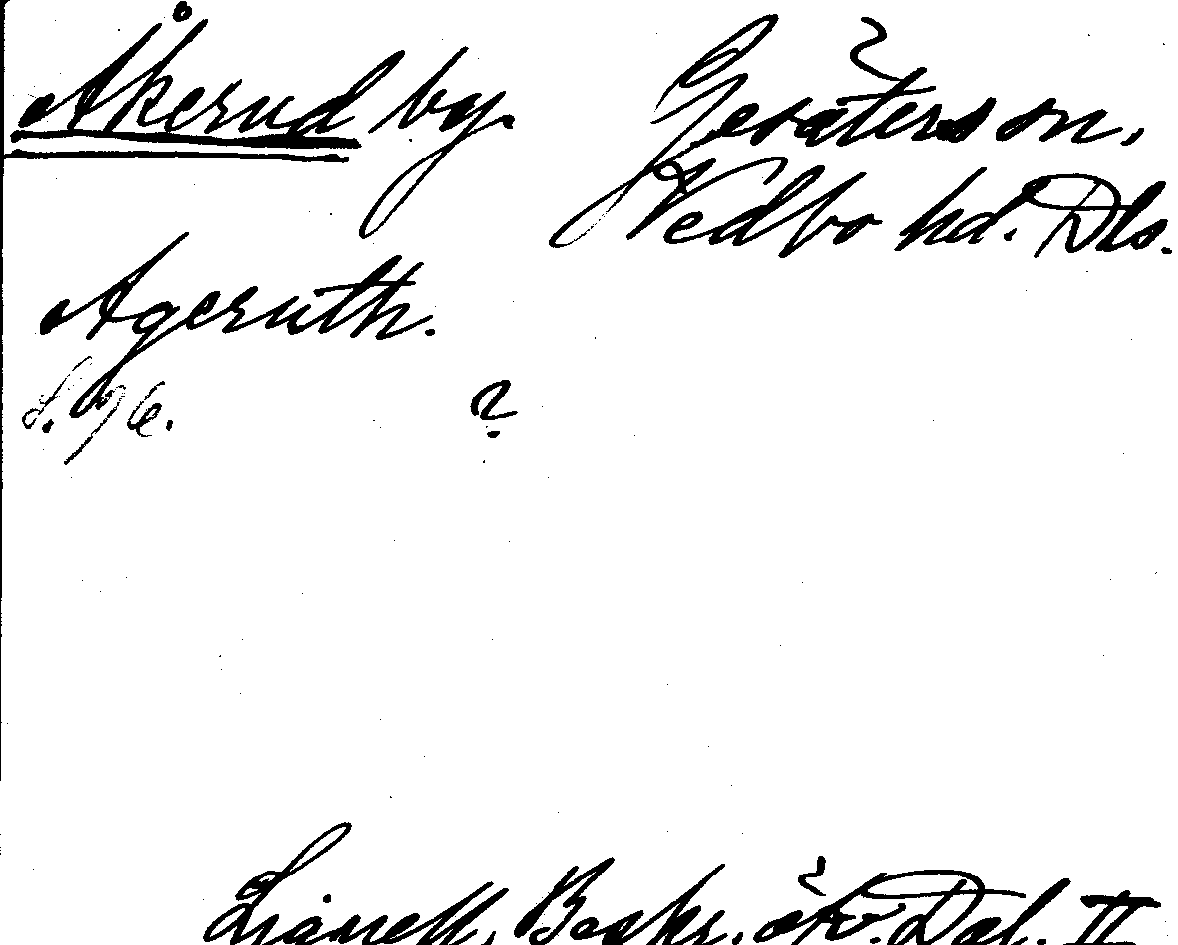 Åkerud by. Gesäterson,
Vedbo hd. Dls.
Ageruth.
S. 96. ?
Lignell, Beskr. öfv. Dal. II